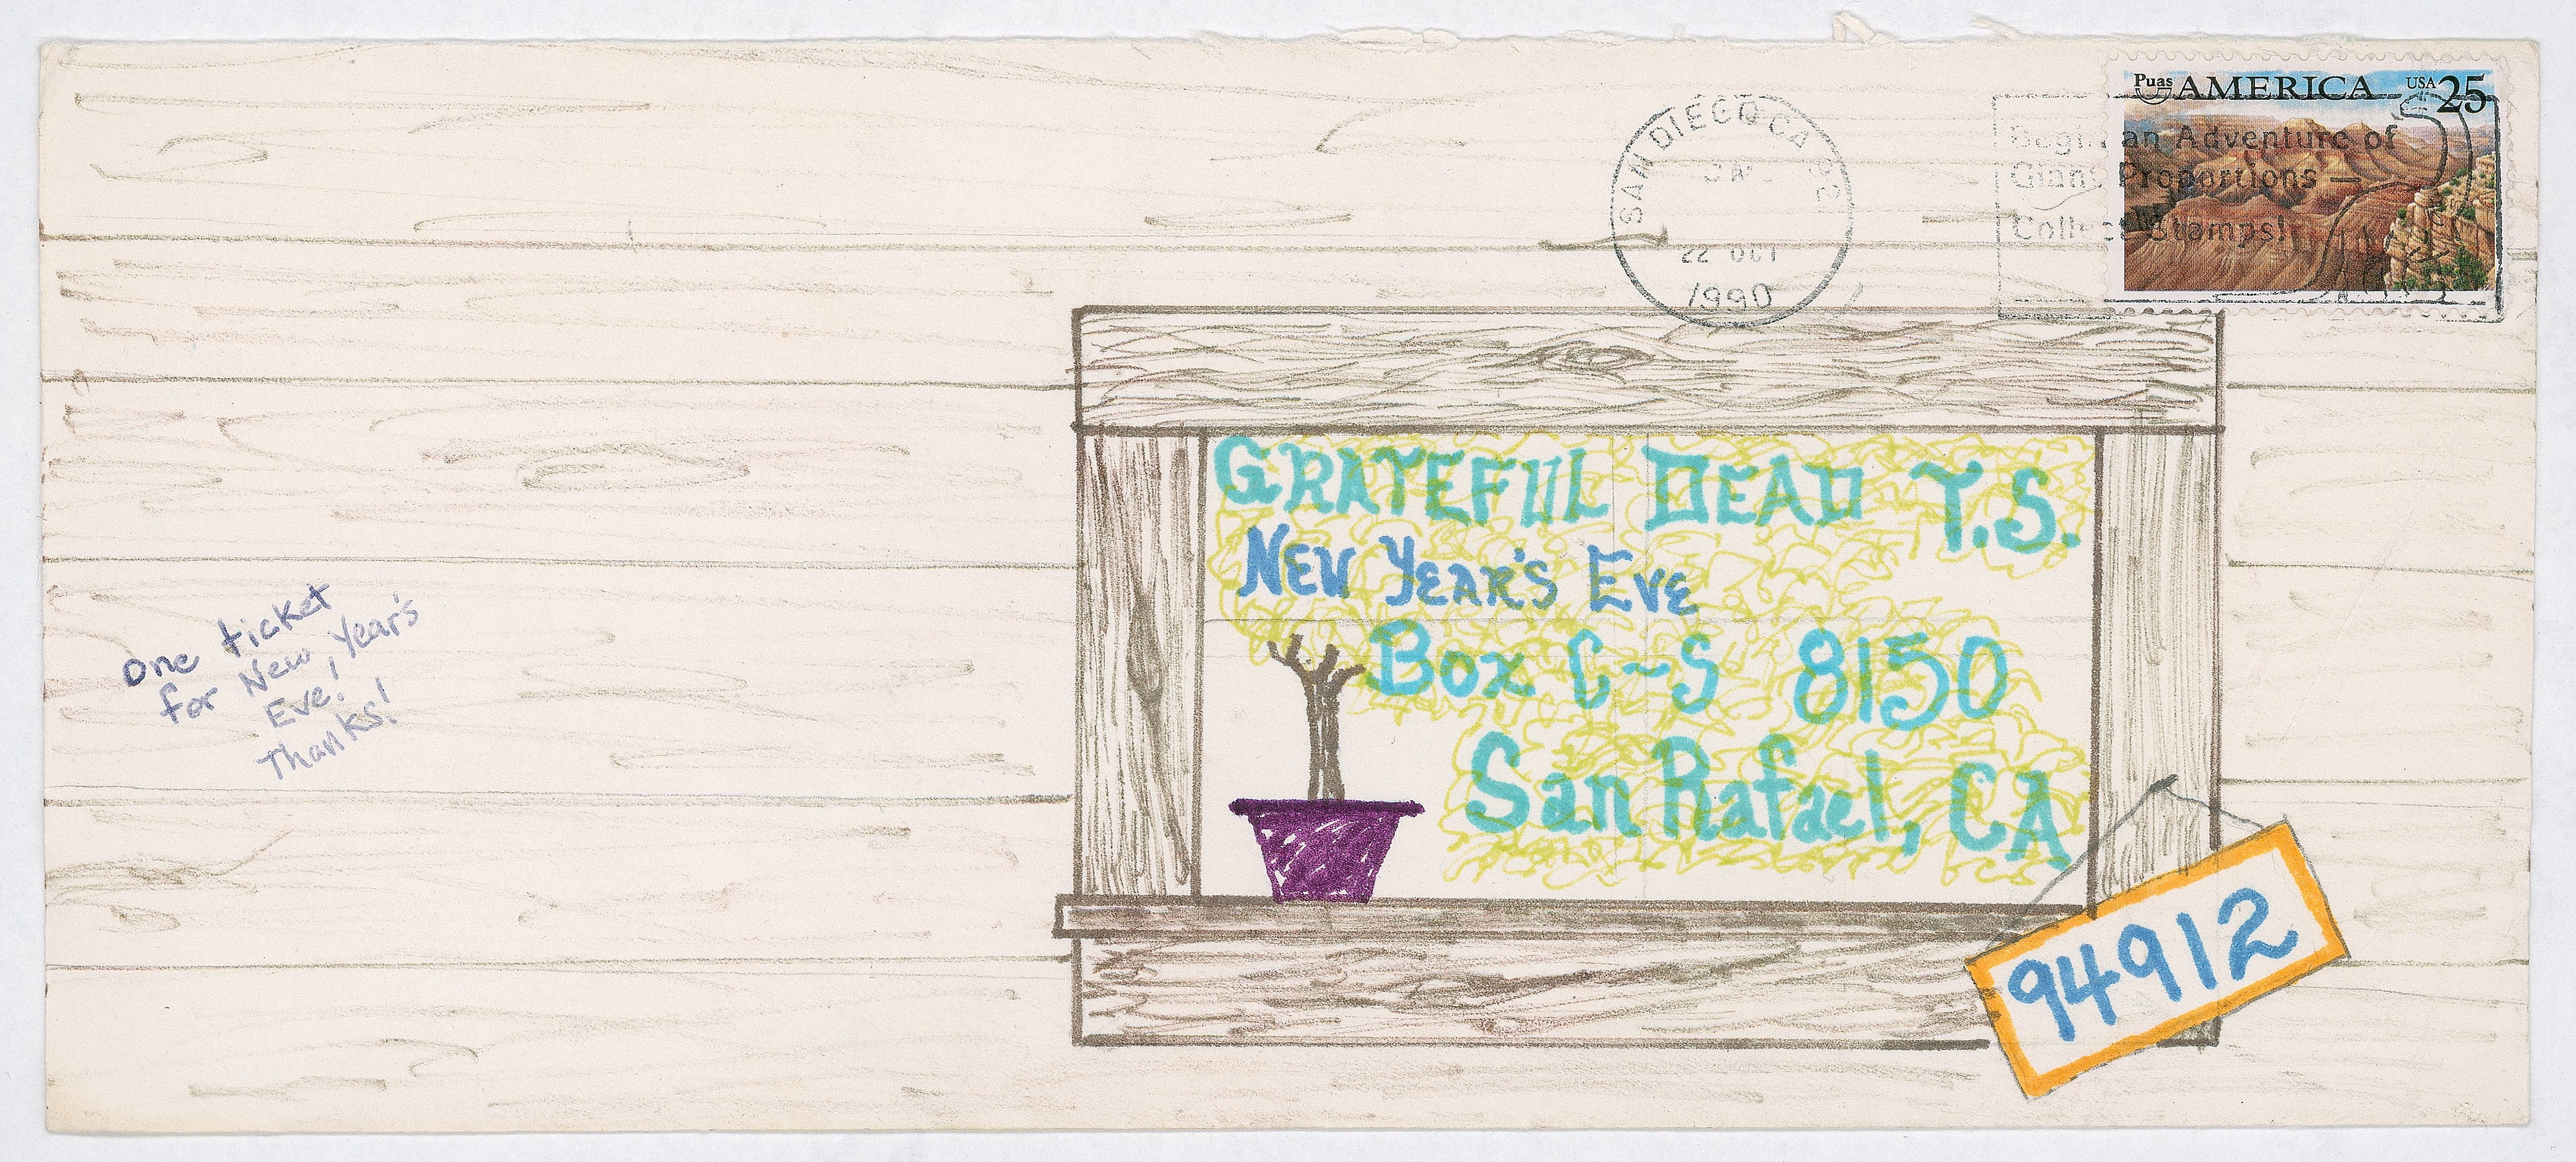 Puas AMERICA USA 25
SAN DIEGO CA 92
22 OCT
1990
Begin an Adventure of
Giant Proportions —
Collect Stamps!
GRATEFUL DEAD T.S.
NEW YEAR'S EVE
Box C-S 8150
San Rafael, CA
94912
One ticket
for New Year's
Eve!
Thanks!